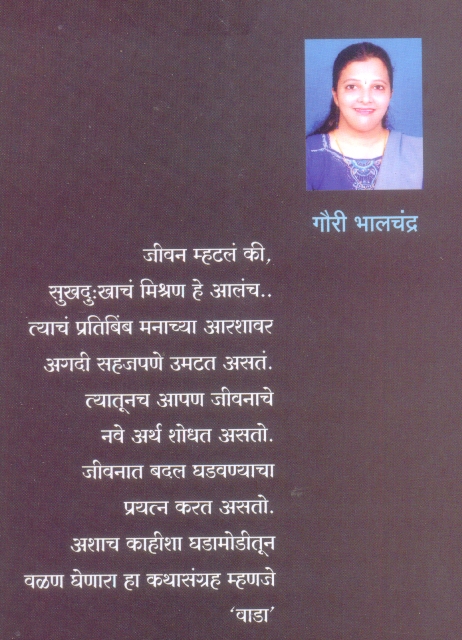 गौरी भालचंद्र
जीवन म्हटलं की,
सुखदुःखाचं मिश्रण हे आलंच..
त्याचं प्रतिबिंब मनाच्या आरशावर
अगदी सहजपणे उमटत असतं.
त्यातूनच आपण जीवनाचे
नवे अर्थ शोधत असतो.
जीवनात बदल घडवण्याचा
प्रयत्न करत असतो.
अशाच काहीशा घडामोडीतून
वळण घेणारा हा कथासंग्रह म्हणजे
‘वाडा’